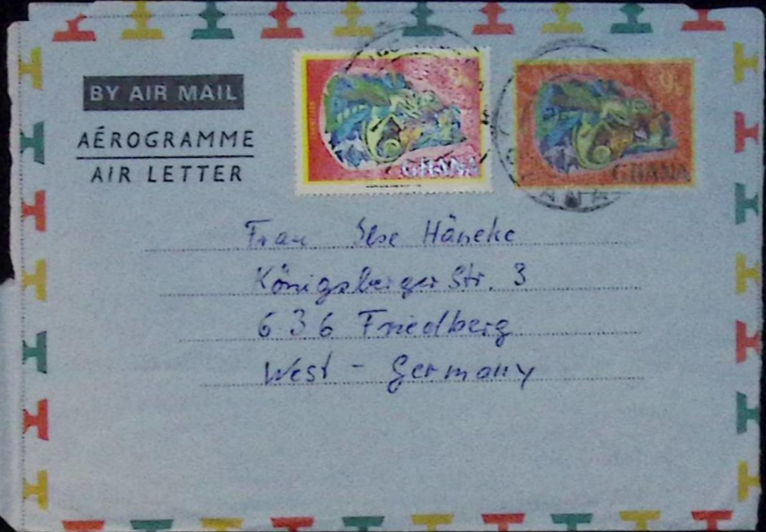 BY AIR MAIL
AÉROGRAMME
AIR LETTER
GHANA
GHANA
Frau Ilse Häneke
Königsberger Str. 3
636 Friedberg
West - Germany